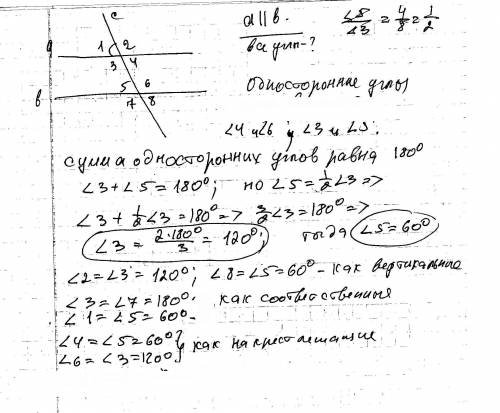 c
a 1 2
3 4
в 5 6
7 8
a || в.
все угл-?
∠5/∠3 = 4/8 = 1/2
Односторонние углы
∠4 и ∠6 и ∠3 и ∠5.
сумма односторонних углов равна 180°
∠3 + ∠5 = 180°; но ∠5 = 1/2 ∠3 =>
∠3 + 1/2 ∠3 = 180° => 3/2 ∠3 = 180° =>
∠3 = 2·180°/3 = 120°; тогда ∠5 = 60°
∠2 = ∠3 = 120°; ∠8 = ∠5 = 60° - как вертикальные
∠3 = ∠7 = 180° как соответственные
∠1 = ∠5 = 60°
∠4 = ∠5 = 60° } как накрест лежащие
∠6 = ∠3 = 120°